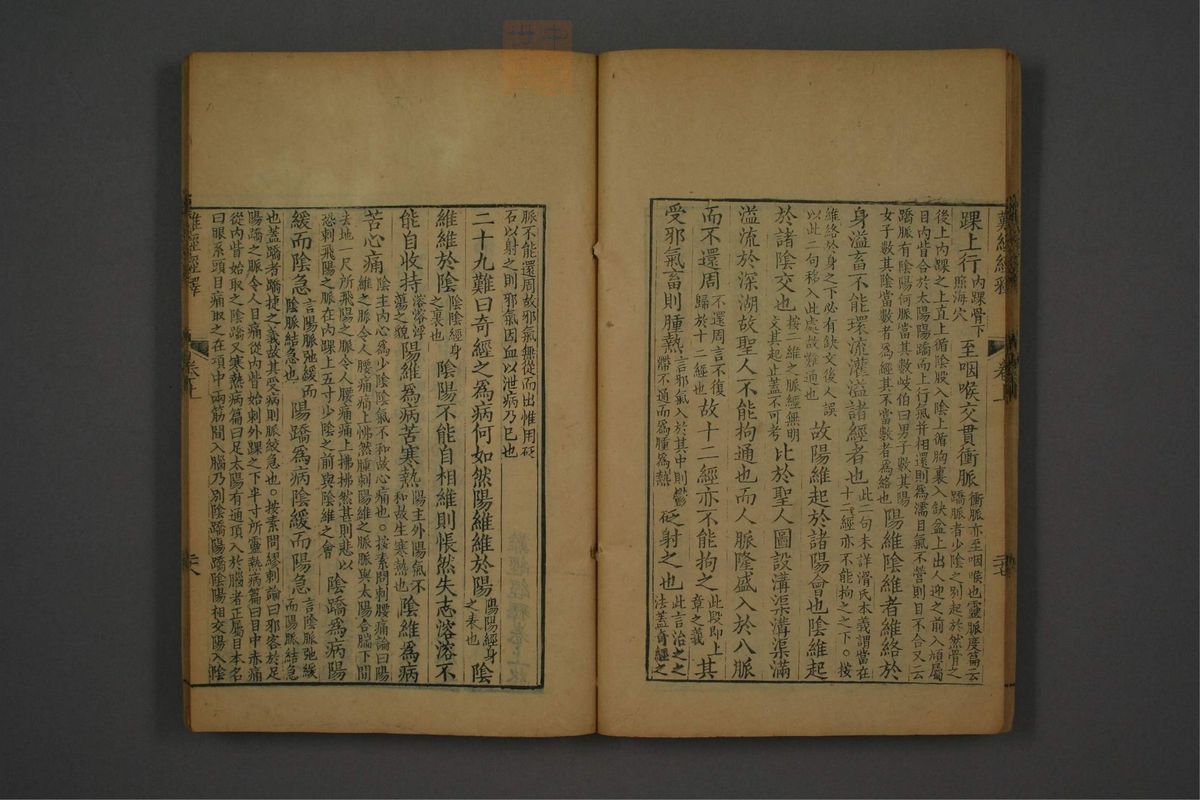 踝上行内踝骨下照海穴至咽喉交貫衝脈衝脈亦至咽喉也靈脈度篇云蹻脈者少陰之別起於然骨之
後上内踝之上直上循陰股入陰上循胸裏入缺盆上出人迎之前入頄屬
目内眥合於太陽陽蹻而上行氣并相還則爲濡目氣不營則目不合又云
蹻脈有陰陽何脈當其數岐伯曰男子數其陽
女子數其陰當數者爲經其不當數者爲絡也陽維陰維者維絡於
身溢畜不能環流灌溢諸經者也此二句未詳滑氏本義謂當在十二經亦不能拘之之下。按
維絡於身之下必有缺文後人誤
以此二句移入此處故難通也故陽維起於諸陽會也陰維起
於諸陰交也按二維之脈經無明文其起止蓋不可考比於聖人圖設溝渠溝渠滿
溢流於深湖故聖人不能拘通也而人脈隆盛入於八脈
而不還周不還周言不復歸於十二經也故十二經亦不能拘之此段即上章之義其
受邪氣畜則腫熱言邪氣入於其中則鬱滯不通而爲腫爲熱砭射之也此言治之之法蓋奇經之
難經經釋
卷上
二十七
脈不能還周故邪氣無從而出惟用砭
石以射之則邪氣因血以泄病乃已也
二十九難曰奇經之爲病何如然陽維維於陽陽陽經身之表也陰
維維於陰陰陰經身之裏也陰陽不能自相維則悵然失志溶溶不
能自收持溶溶浮蕩之貌陽維爲病苦寒熱陽主外陽氣不和故生寒熱也陰維爲病
苦心痛陰主内心爲少陰陰氣不和故心痛也。按素問刺腰痛論曰陽維之脈令人腰痛痛上怫然腫刺陽維之脈脈與太陽合腨下間
去地一尺所飛陽之脈令人腰痛痛上拂拂然甚則悲以
恐刺飛陽之脈在内踝上五寸少陰之前與陰維之會陰蹻爲病陽
緩而陰急言陽脈弛緩而陰脈結急也陽蹻爲病陰緩而陽急言陰脈弛緩而陽脈結急
也蓋蹻者蹻捷之義故其受病則脈絞急也。按素問繆刺論曰邪客於足
陽蹻之脈令人目痛從内眥始刺外踝之下半寸所靈熱病篇曰目中赤痛
從内眥始取之陰蹻又寒熱病篇曰足太陽有通項入於腦者正屬目本名
曰眼系頭目痛取之在項中兩筋間入腦乃別陰蹻陽蹻陰陽相交陽入陰
難經經釋
卷上
二十八